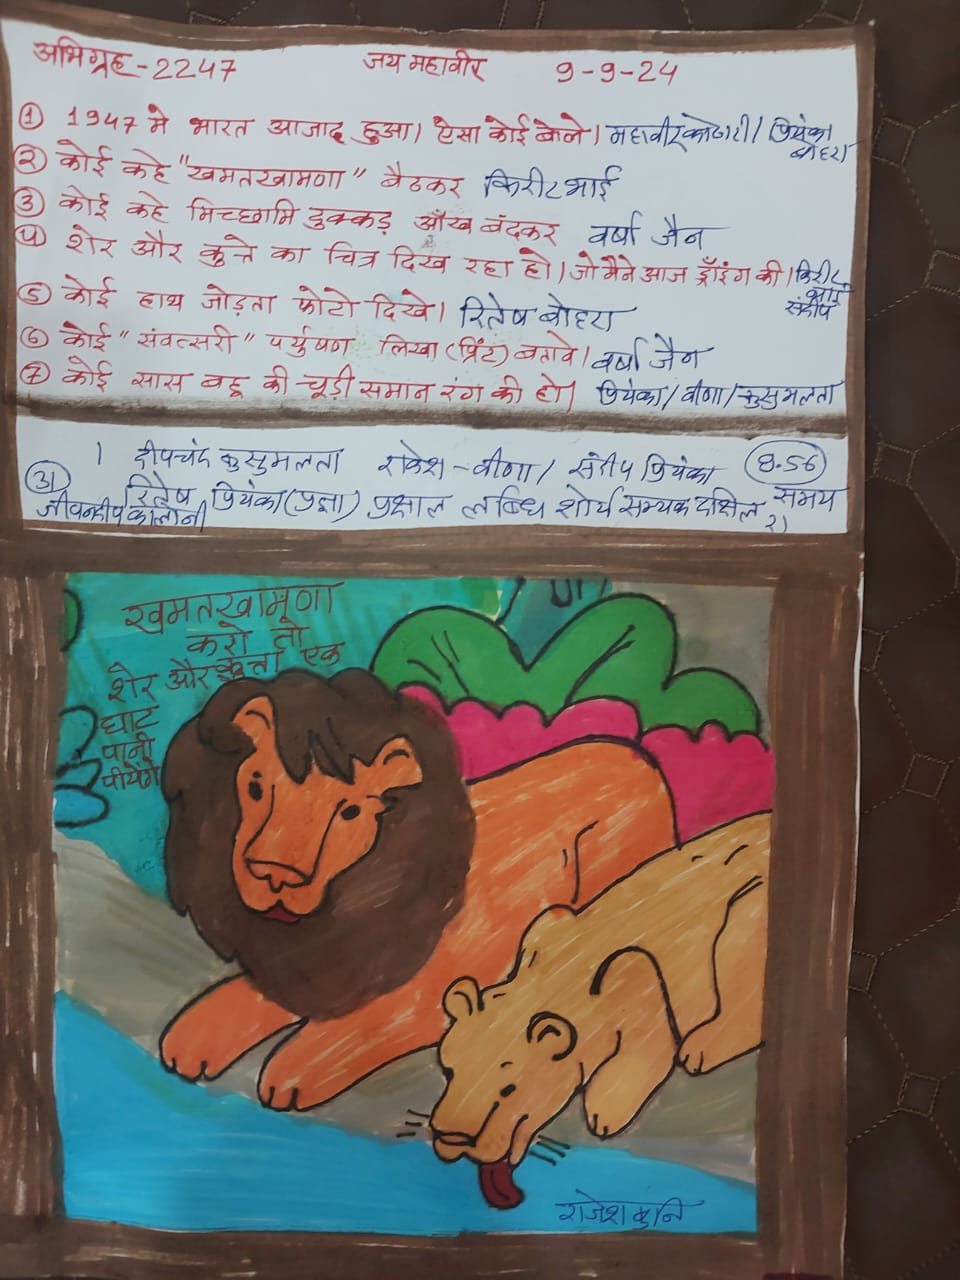 अभिग्रह-2247 जय महावीर 9-9-24
① 1947 मे भारत आजाद हुआ। ऐसा कोई बोले। महावीर कोठारी/ प्रियंका बोहरा
② कोई कहे "खमतखामणा" बैठकर किरीटभाई
③ कोई कहे मिच्छामि दुक्कड़ आँख बंदकर वर्षा जैन
४ शेर और कुत्ते का चित्र दिख रहा हो। जो मैने आज ड्राँइंग की। किरीट भाई संदीप
⑤ कोई हाथ जोड़ता फोटो दिखे। रितेष बोहरा
⑥ कोई "संवत्सरी" पर्युषण लिखा (प्रिंट) बतावे। वर्षा जैन
⑦ कोई सास बहू की चूड़ी समान रंग की हो। प्रियंका/ वीणा/ कुसुमलता
। दीपचंद कुसुमलता राकेश-वीणा/ संदीप प्रियंका 8.56
31 रितेष प्रियंका (प्रज्ञा) प्रक्षाल लब्धि शौर्य सम्यक दक्षिल समय
जीवनदीप कालोनी २)
खमतखामूणा
करो तो
शेर और कुत्ता एक
घाट
पानी
पीयेंगे
राजेश मुनि